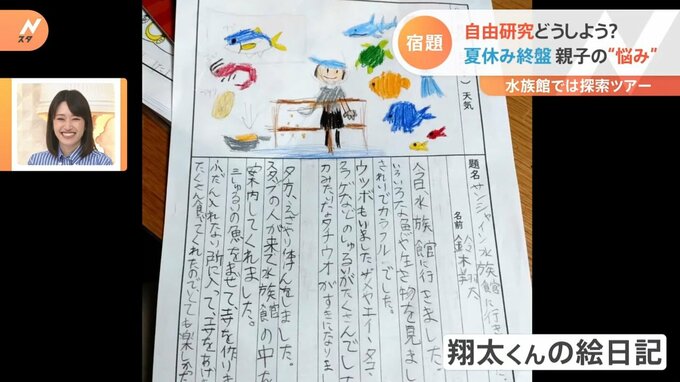 Nスタ
宿題
自由研究どうしよう?
夏休み終盤 親子の“悩み”
水族館では探索ツアー
天気
題名 サンシャイン水族館に行き
名前 鈴木翔太
今日、水族館に行きました。
いろいろな魚や生き物を見まし
きれいでカラフルでした。
ウツボもいました。サメやエイ、タコ、
クラゲなどのしゅるいがたくさんでした
みたいなタチウオがすきになりまし
夕方、えさやり体けんをしました。
スタッフの人が来て水族館の中を
案内してくれました。
三しゅるいの魚をまぜて、えさを作りま
ふだん入れない所に入って、えさをあげ
たくさん食べてくれたのでとても楽しかった
翔太くんの絵日記